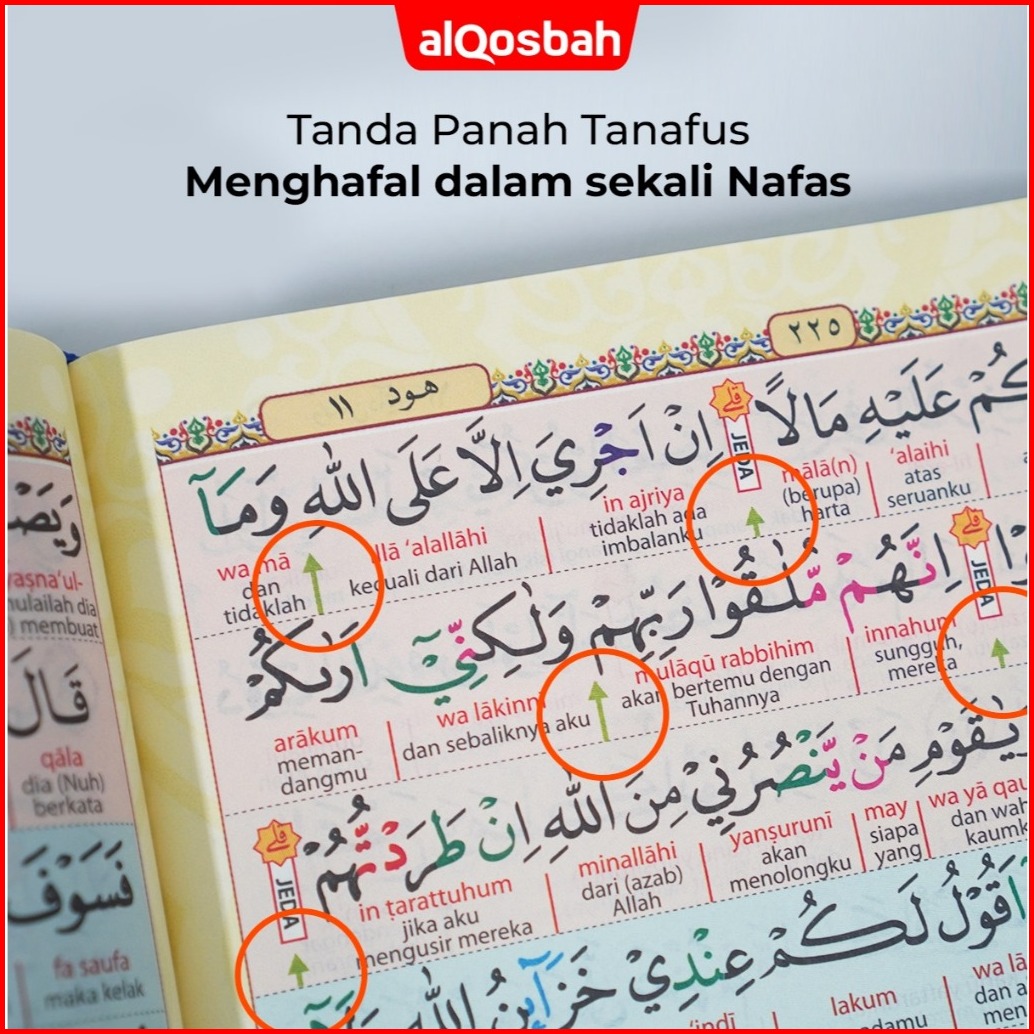 alQosbah
Tanda Panah Tanafus
Menghafal dalam sekali Nafas
٢٢٥
هود ١١
كُمْ عَلَيْهِ مَالًا ۗ اِنْ اَجْرِيَ اِلَّا عَلَى اللّٰهِ وَمَآ
قلے
JEDA
‘alaihi mālā(n) in ajriya illā ‘alallāhi wa mā
atas seruanku (berupa) harta tidaklah ada imbalanku kecuali dari Allah dan tidaklah
اِنَّهُمْ مُّلٰقُوْا رَبِّهِمْ وَلٰكِنِّيْٓ اَرٰىكُمْ
قلے
JEDA
innahum mulāqū rabbihim wa lākinnī arākum
sungguh, mereka akan bertemu dengan Tuhannya dan sebaliknya aku meman-dangmu
يٰقَوْمِ مَنْ يَّنْصُرُنِيْ مِنَ اللّٰهِ اِنْ طَرَدْتُّهُمْ
قلے
JEDA
wa yā qau may yanṣurunī minallāhi in ṭarattuhum
dan wah kaumk siapa yang akan menolongku dari (azab) Allah jika aku mengusir mereka
اَقُوْلُ لَكُمْ عِنْدِيْ خَزَاۤىِٕنُ اللّٰهِ
wa lā lakum ‘indī
dan a
men
وَيَصْ
yaṣna‘ul-
mulailah dia
membuat
قَالَ
qāla
dia (Nuh)
berkata
فَسَوْفَ
fa saufa
maka kelak